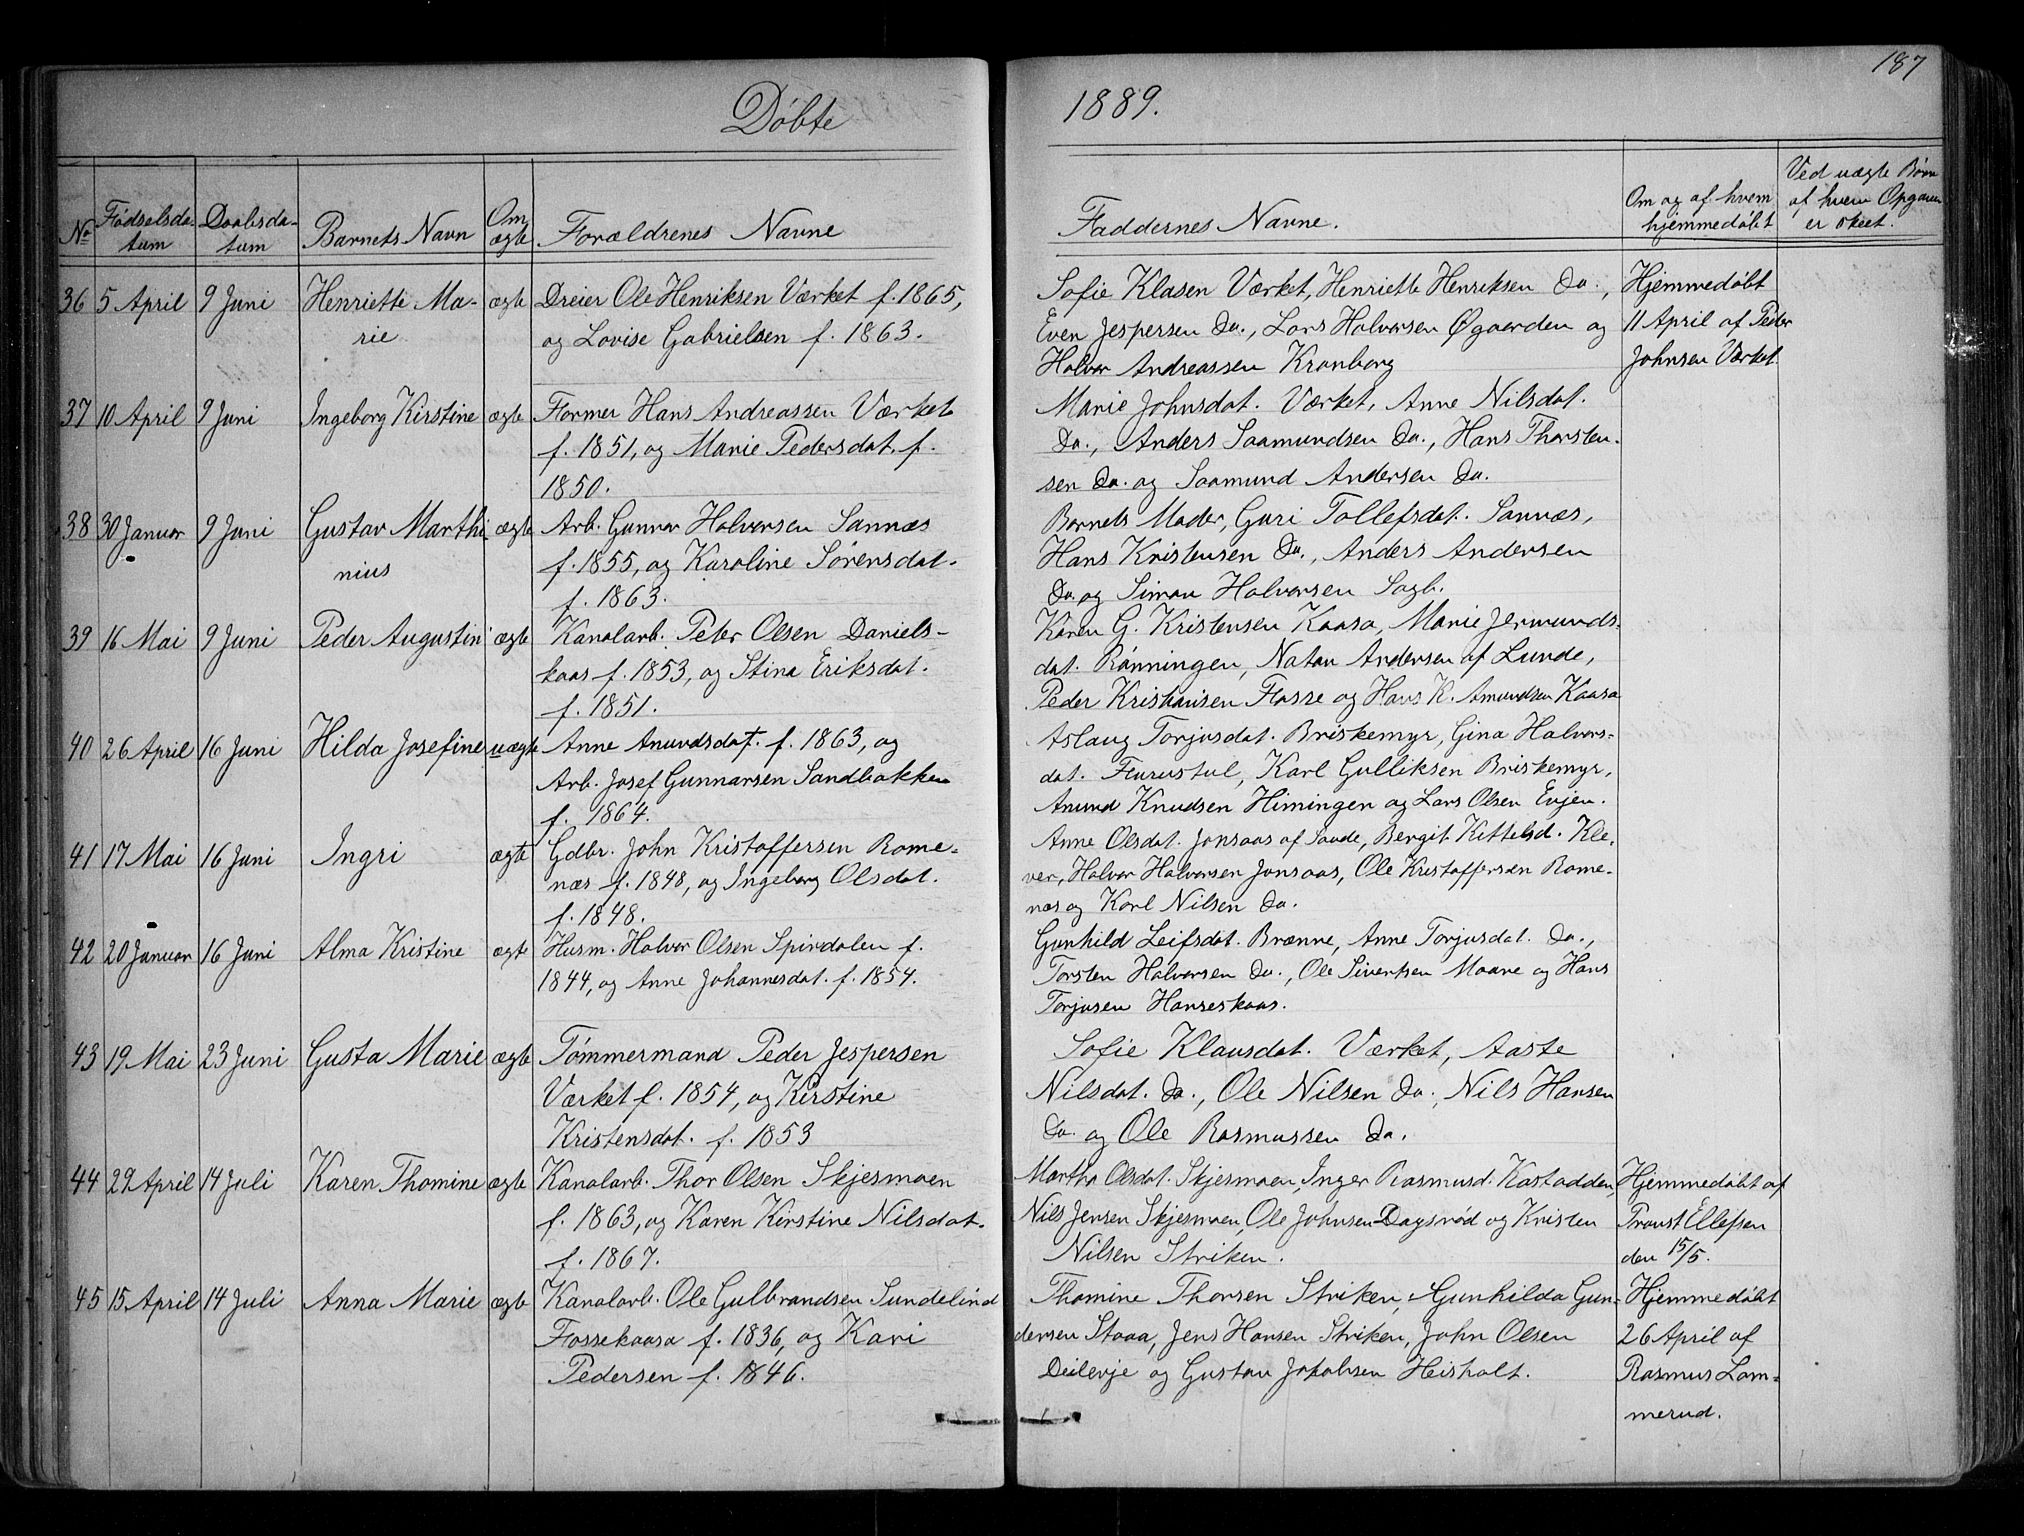 187
Døbte 1889.
No Fødselsda- Daabsda- Barnets Navn Om Forældrenes Navne Faddernes Navne. Om og af hvem Ved uægte Børn
tum tum ægte hjemmedøbt af hvem Opgaven
er skeet.
36 5 April 9 Juni Henriette Ma- ægte Dreier Ole Henriksen Værket f. 1865, Sofie Klasen Værket, Henriette Henriksen Do., Hjemmedøbt
rie og Lovise Gabrielsen f. 1863. Even Jespersen Do., Lars Halvorsen Øgaarden og 11 April af Peder
Halvor Andreassen Kronborg Johnsen Værket
37 10 April 9 Juni Ingeborg Kirstine ægte Former Hans Andreassen Værket Marie Johnsdat. Værket, Anne Nilsdat.
f. 1851, og Marie Pedersdat. f. Do., Anders Saamundsen Do., Hans Thorsten-
1850. sen Do. og Saamund Andersen Do.
38 30 Januar 9 Juni Gustav Marthi- ægte Arb. Gunnar Halvorsen Sannæs Barnets Moder, Guri Tollefsdat. Sannæs,
nius f. 1855, og Karoline Sørensdat. Hans Kristensen Do., Anders Andersen
f. 1863. Do. og Simon Halvorsen Sagb.
39 16 Mai 9 Juni Peder Augustin ægte Kanalarb. Peter Olsen Daniels- Karen G. Kristensen Kaasa, Marie Jermunds-
kaas f. 1853, og Stina Eriksdat. dat. Rønningen, Natan Andersen af Lunde,
f. 1851. Peder Kristiansen Fosse og Hans K. Amundsen Kaasa
40 26 April 16 Juni Hilda Josefine uægte Anne Anundsdat. f. 1863, og Aslaug Torjusdat. Briskemyr, Gina Halvors-
Arb. Josef Gunnarsen Sandbakken dat. Furustul, Karl Gulliksen Briskemyr,
f. 1864. Anund Knudsen Himingen og Lars Olsen Evjen.
41 17 Mai 16 Juni Ingri ægte Gdbr. John Kristoffersen Rome- Anne Olsdat. Jonsaas af Saude, Bergit Kittelsd. Kle-
næs f. 1848, og Ingeborg Olsdat. ver, Halvor Halvorsen Jonsaas, Ole Kristoffersen Rome-
f. 1848. næs og Karl Nilsen Do.
42 20 Januar 16 Juni Alma Kristine ægte Husm. Halvor Olsen Spirdalen f. Gunhild Leifsdat. Brænne, Anne Torjusdat. Do.,
1844, og Anne Johannesdat. f. 1854. Torsten Halvorsen Do., Ole Sivertsen Moane og Hans
Torjusen Hanseskaas.
43 19 Mai 23 Juni Gusta Marie ægte Tømmermand Peder Jespersen Sofie Klausdat. Værket, Aaste
Værket f. 1854, og Kirstine Nilsdat. Do., Ole Nilsen Do., Nils Hansen
Kristensdat. f. 1853 Do. og Ole Rasmussen Do.
44 29 April 14 Juli Karen Thomine ægte Kanalarb. Thor Olsen Skjesmoen Martha Olsdat. Skjesmoen, Inger Rasmusd. Kastodden, Hjemmedøbt af
f. 1863, og Karen Kirstine Nilsdat. Nils Jensen Skjesmoen, Ole Johnsen Dagsrød og Kristen Proust Ellefsen
f. 1867. Nilsen Striken. den 15/5.
45 15 April 14 Juli Anna Marie ægte Kanalarb. Ole Gulbrandsen Sundelind Thomine Thorsen Striken, Gunhilda Gun- Hjemmedøbt
Fossekaasa f. 1836, og Kari dersen Staaa, Jens Hansen Striken, John Olsen 26 April af
Pedersen f. 1846. Deilevje og Gustav Jakobsen Heisholt. Rasmus Lom-
merud.